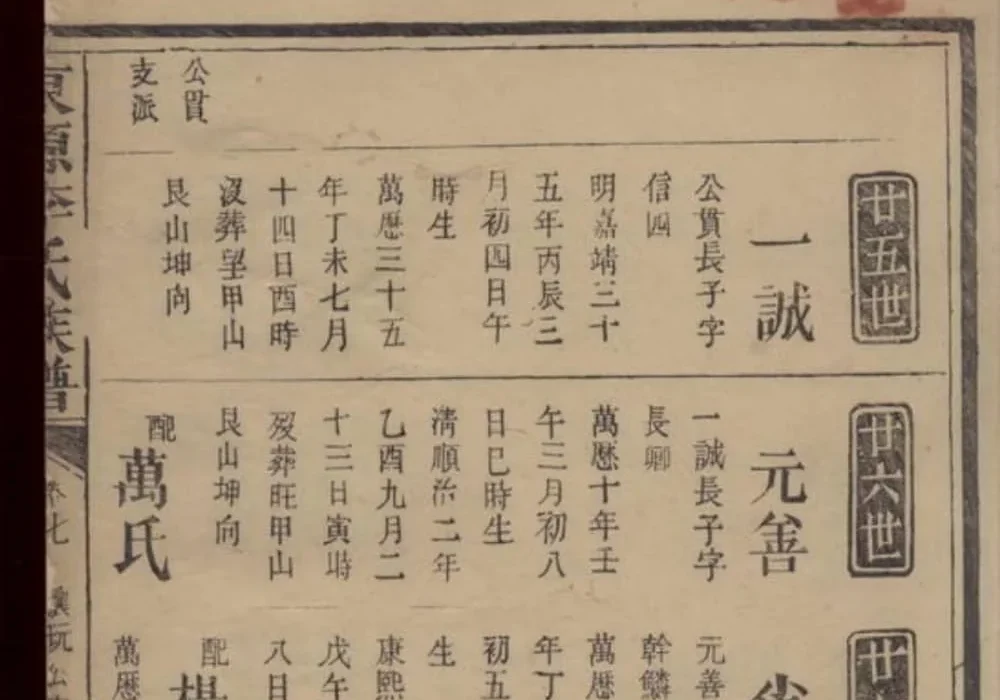 公貫
支派
廿五世
一誠
公貫長子字
信四
明嘉靖三十
五年丙辰三
月初四日午
時生
萬曆三十五
年丁未七月
十四日酉時
沒葬望甲山
艮山坤向
廿六世
元善
一誠長子字
長卿
萬曆十年壬
午三月初八
日巳時生
清順治二年
乙酉九月二
十三日寅時
歿葬旺甲山
艮山坤向
配
萬氏
廿
元善
幹鱗
萬曆
年丁
初五
生
康熙
戊午
八日
配
楊
萬曆
東源李氏族譜
卷七